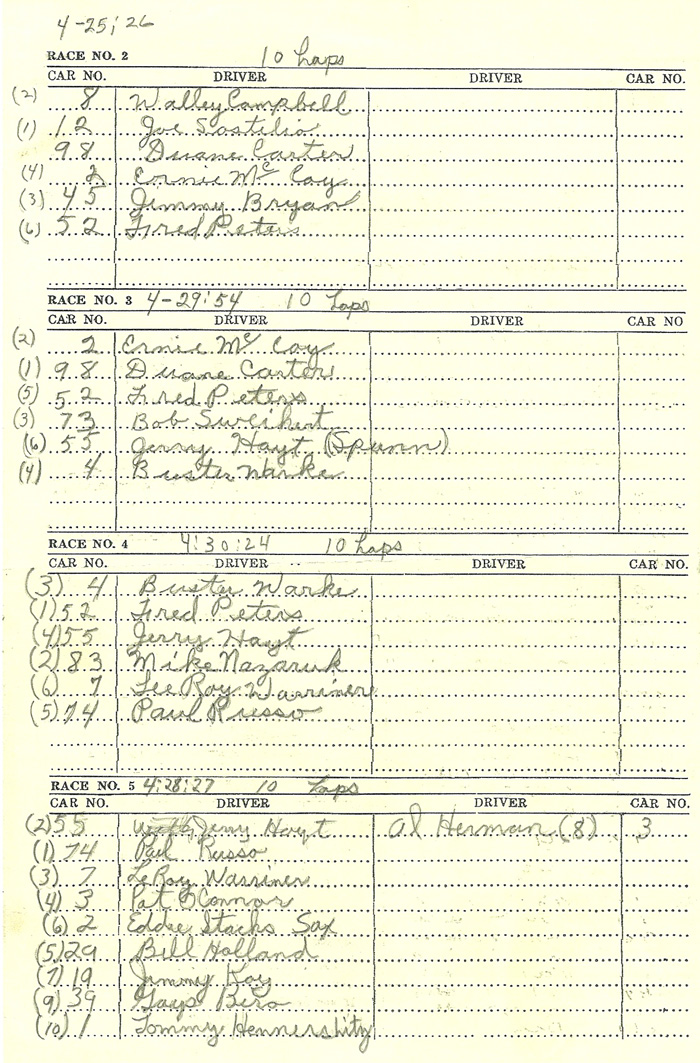 4-25:26
RACE NO. 2 10 Laps
CAR NO. DRIVER DRIVER CAR NO.
(2) 8 Walley Campbell
(1) 12 Joe Sostilio
98 Duane Carter
(4) 2 Ernie McCoy
(3) 45 Jimmy Bryan
(6) 52 Fred Peters
RACE NO. 3 4-29:54 10 Laps
CAR NO. DRIVER DRIVER CAR NO
(2) 2 Ernie McCoy
(1) 98 Duane Carter
(5) 52 Fred Peters
(3) 73 Bob Sweikert
(6) 55 Jerry Hoyt (Spunn)
(4) 4 Buster Warke
RACE NO. 4 4:30:24 10 Laps
CAR NO. DRIVER DRIVER CAR NO.
(3) 4 Buster Warke
(1) 52 Fred Peters
(4) 55 Jerry Hoyt
(2) 83 Mike Nazaruk
(6) 7 LeeRoy Warriner
(5) 74 Paul Russo
RACE NO. 5 4:28:27 10 Laps
CAR NO. DRIVER DRIVER CAR NO.
(2) 55 Jerry Hoyt Al Herman (8) 3
(1) 74 Paul Russo
(3) 7 LeRoy Warriner
(4) 3 Pat O'Connor
(6) 2 Eddie Sachs Sax
(5) 29 Bill Holland
(7) 19 Jimmy Kay
(9) 39 Gays Biro
(10) 1 Tommy Hennershitz